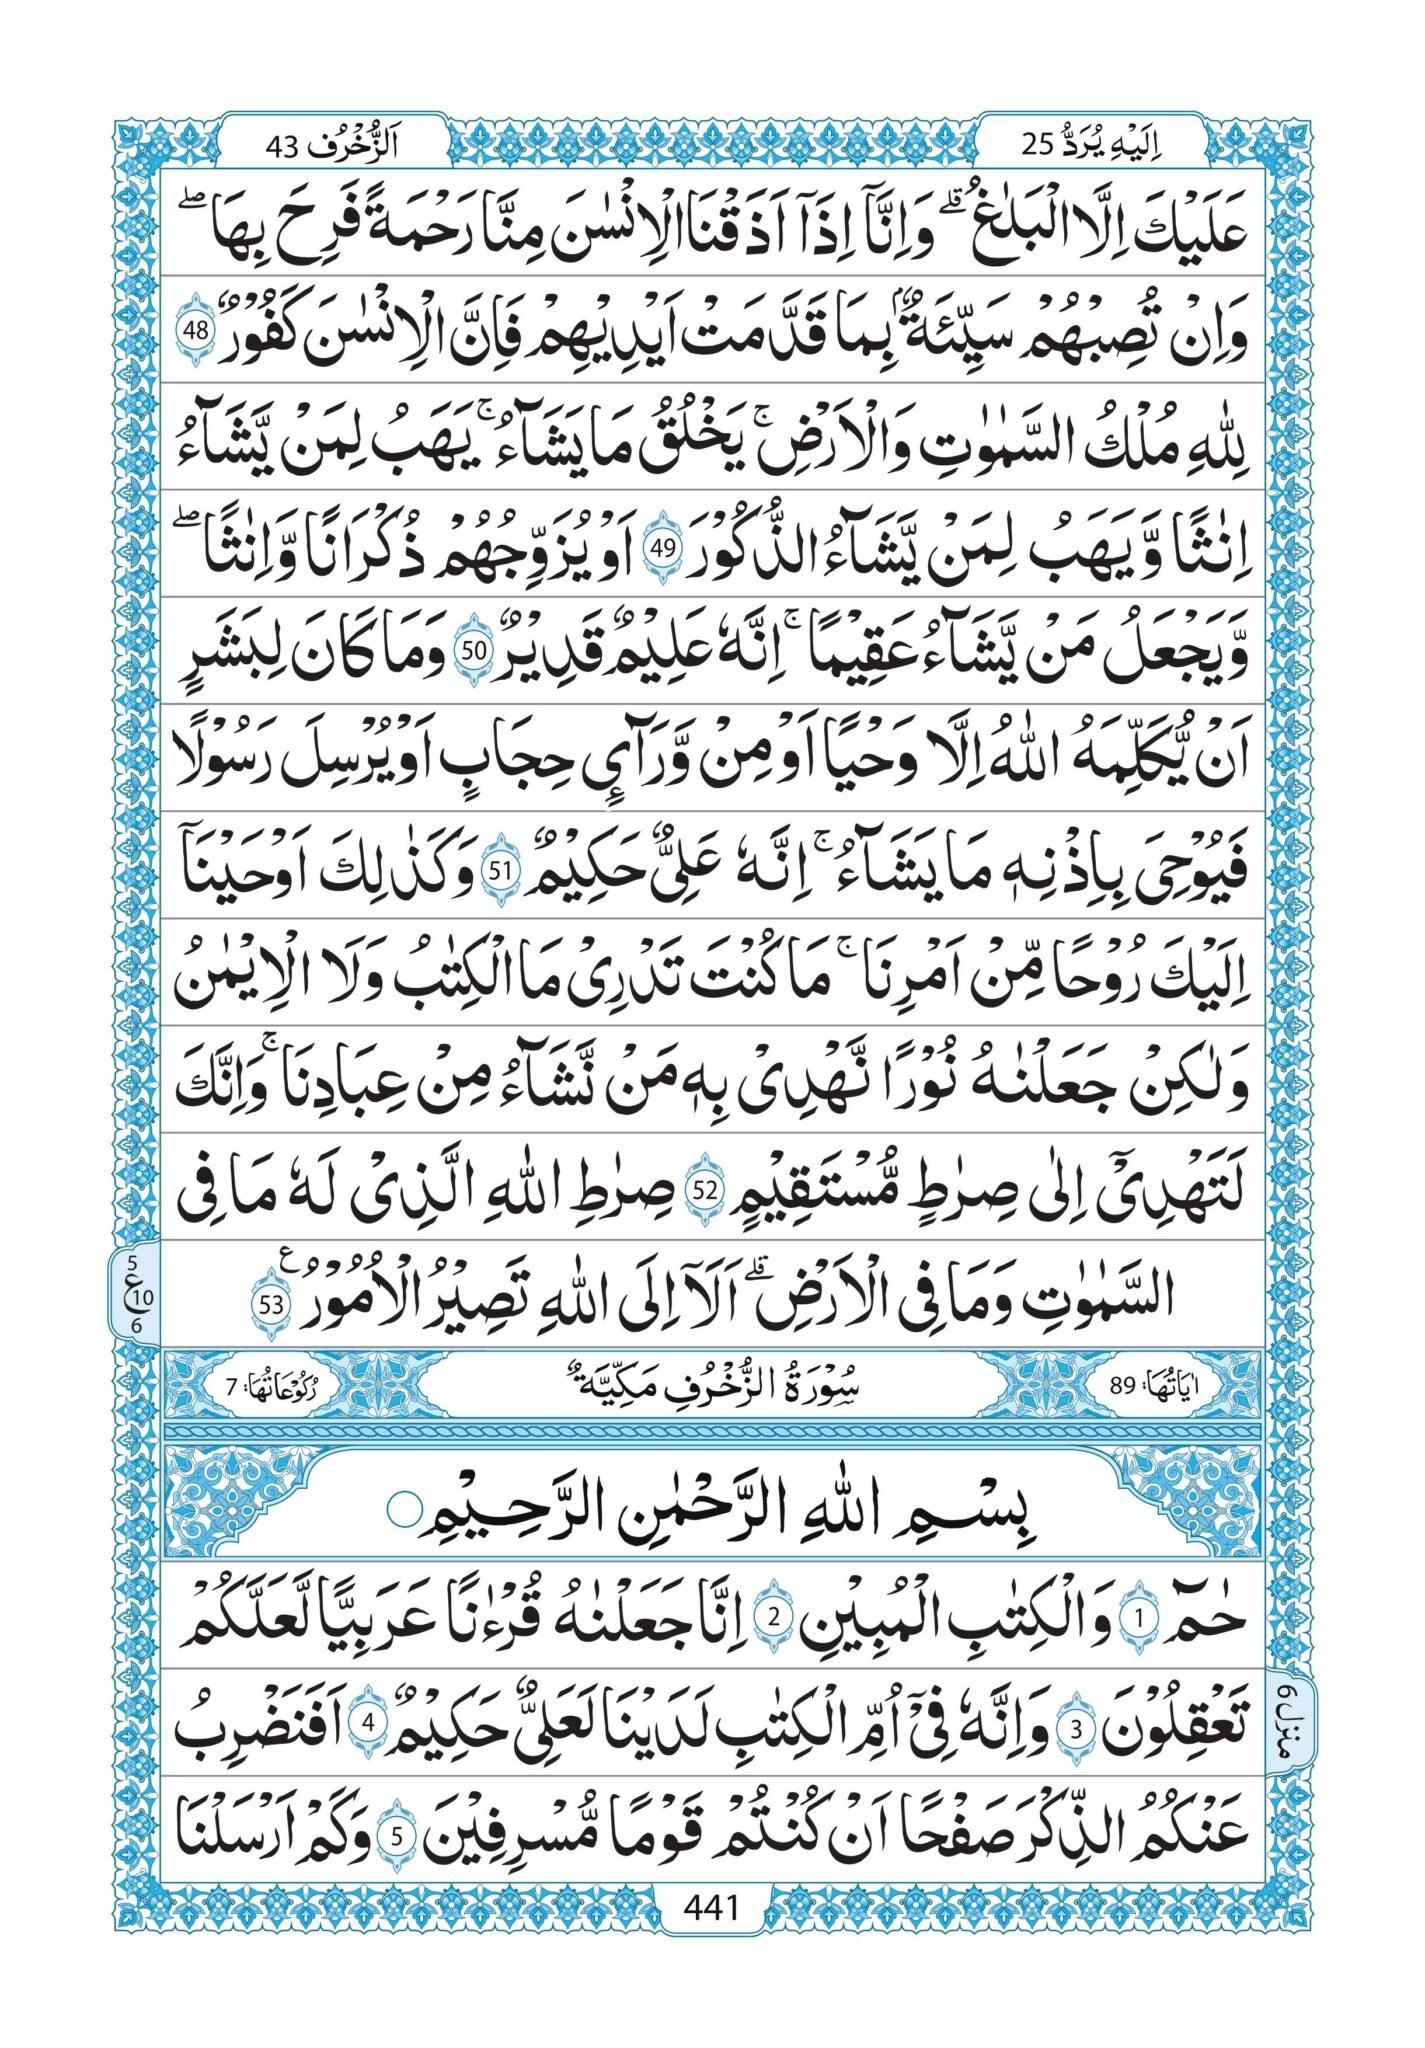 اِلَيْهِ يُرَدُّ 25
اَلزُّخْرُف 43
عَلَيْكَ اِلَّا الْبَلٰغُ ۗ وَاِنَّآ اِذَآ اَذَقْنَا الْاِنْسٰنَ مِنَّا رَحْمَةً فَرِحَ بِهَا ۖ
وَاِنْ تُصِبْهُمْ سَيِّئَةٌۢ بِمَا قَدَّمَتْ اَيْدِيْهِمْ فَاِنَّ الْاِنْسٰنَ كَفُوْرٌ 48
لِلّٰهِ مُلْكُ السَّمٰوٰتِ وَالْاَرْضِ ۚ يَخْلُقُ مَا يَشَآءُ ۚ يَهَبُ لِمَنْ يَّشَآءُ
اِنٰثًا وَّيَهَبُ لِمَنْ يَّشَآءُ الذُّكُوْرَ 49 اَوْ يُزَوِّجُهُمْ ذُكْرَانًا وَّاِنٰثًا ۖ
وَّيَجْعَلُ مَنْ يَّشَآءُ عَقِيْمًا ۚ اِنَّهٗ عَلِيْمٌ قَدِيْرٌ 50 وَمَا كَانَ لِبَشَرٍ
اَنْ يُّكَلِّمَهُ اللّٰهُ اِلَّا وَحْيًا اَوْ مِنْ وَّرَآئِ حِجَابٍ اَوْ يُرْسِلَ رَسُوْلًا
فَيُوْحِىَ بِاِذْنِهٖ مَا يَشَآءُ ۚ اِنَّهٗ عَلِىٌّ حَكِيْمٌ 51 وَكَذٰلِكَ اَوْحَيْنَآ
اِلَيْكَ رُوْحًا مِّنْ اَمْرِنَا ۚ مَا كُنْتَ تَدْرِىْ مَا الْكِتٰبُ وَلَا الْاِيْمٰنُ
وَلٰكِنْ جَعَلْنٰهُ نُوْرًا نَّهْدِىْ بِهٖ مَنْ نَّشَآءُ مِنْ عِبَادِنَا ۚ وَاِنَّكَ
لَتَهْدِىْٓ اِلٰى صِرٰطٍ مُّسْتَقِيْمٍ 52 صِرٰطِ اللّٰهِ الَّذِىْ لَهٗ مَا فِى
السَّمٰوٰتِ وَمَا فِى الْاَرْضِ ۗ اَلَآ اِلَى اللّٰهِ تَصِيْرُ الْاُمُوْرُ ع 53
5
ع 10
6
اٰيَاتُهَا: 89
سُوْرَةُ الزُّخْرُفِ مَكِّيَّةٌ
رُكُوْعَاتُهَا: 7
بِسْمِ اللّٰهِ الرَّحْمٰنِ الرَّحِيْمِ
حٰمٓ 1 وَالْكِتٰبِ الْمُبِيْنِ 2 اِنَّا جَعَلْنٰهُ قُرْءٰنًا عَرَبِيًّا لَّعَلَّكُمْ
تَعْقِلُوْنَ 3 وَاِنَّهٗ فِىْٓ اُمِّ الْكِتٰبِ لَدَيْنَا لَعَلِىٌّ حَكِيْمٌ 4 اَفَنَضْرِبُ
منزل 6
عَنْكُمُ الذِّكْرَ صَفْحًا اَنْ كُنْتُمْ قَوْمًا مُّسْرِفِيْنَ 5 وَكَمْ اَرْسَلْنَا
441